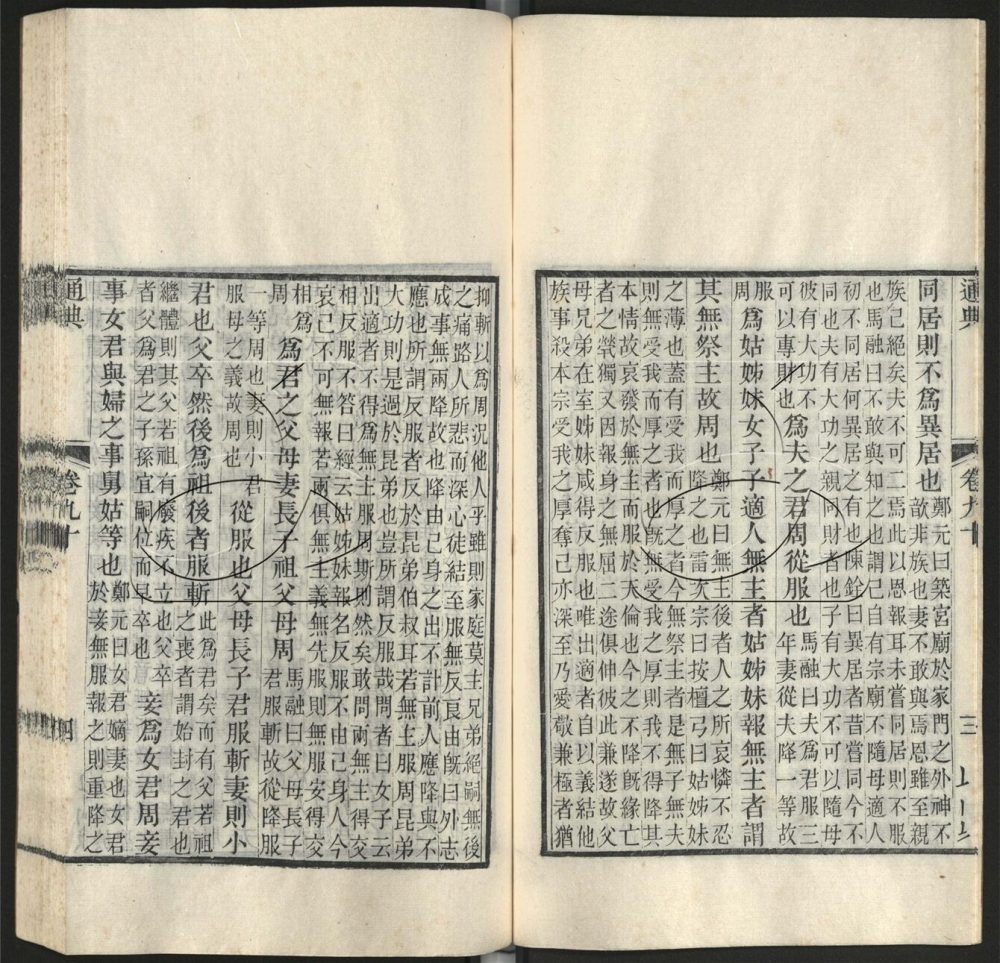 通典
卷九十
三
同居則不爲異居也
鄭元曰築宮廟於家門之外神不
歆非族也妻不敢與焉恩雖至親
族已絕矣夫不可二焉此以恩報耳未嘗同居則不服
也馬融曰不敢與知之也謂已自有宗廟不隨母適人
初不同居何異居之有也陳銓曰異居者昔嘗同今不
同也夫有大功之親同財者也子有大功不可以隨母
彼有大功不
可以專財也
爲夫之君周從服也
馬融曰夫爲君服三
年妻從夫降一等故
服
周
爲姑姊妹女子子適人無主者姑姊妹報無主者謂
其無祭主故周也
鄭元曰無主後者人之所哀憐不忍
降之也雷次宗曰按檀弓曰姑姊妹
之薄也蓋有受我而厚之者今無祭主者是無子無夫
則無受我而厚之者也既無受我之厚則我不得降其
本情故哀發於無主而服於天倫也今之不降既緣亡
者之煢獨又因報身之無屈二途俱伸彼此兼遂故父
母兄弟在室姊妹咸得反服也唯出適者自以義結他
族事殺本宗受我之厚奪己亦深至乃愛敬兼極者猶
抑斬以爲周況他人乎雖則家庭莫主兄弟絕嗣無後
之痛路人所悲而深心徒結至服無反良由既曰外志
成事無兩降故也降由己身之出不計前人應降與不
應也所謂反服者反於昆弟伯叔耳若無主服周昆弟
大功則是過於昆弟也豈所謂反服哉問者曰女子云
出適者不得爲無主服周斯則然矣敢問兩無主得交
相反服不答曰經云姑姊妹報名反服不由己身人今
哀己不可無報若兩俱無主義無先服則無服安得交
相爲
周
爲君之父母妻長子祖父母周
馬融曰父母長子
君服斬故從降服
一等周也妻則小君
服母之義故周也
從服也父母長子君服斬妻則小
君也父卒然後爲祖後者服斬
此爲君矣而有父若祖
之喪者謂始封之君也
繼體則其父若祖有廢疾不立也父卒
者父爲君之子孫宜嗣位而早卒也
妾爲女君周妾
事女君與婦之事舅姑等也
鄭元曰女君嫡妻也女君
於妾無服報之則重降之
通典
卷九十
四